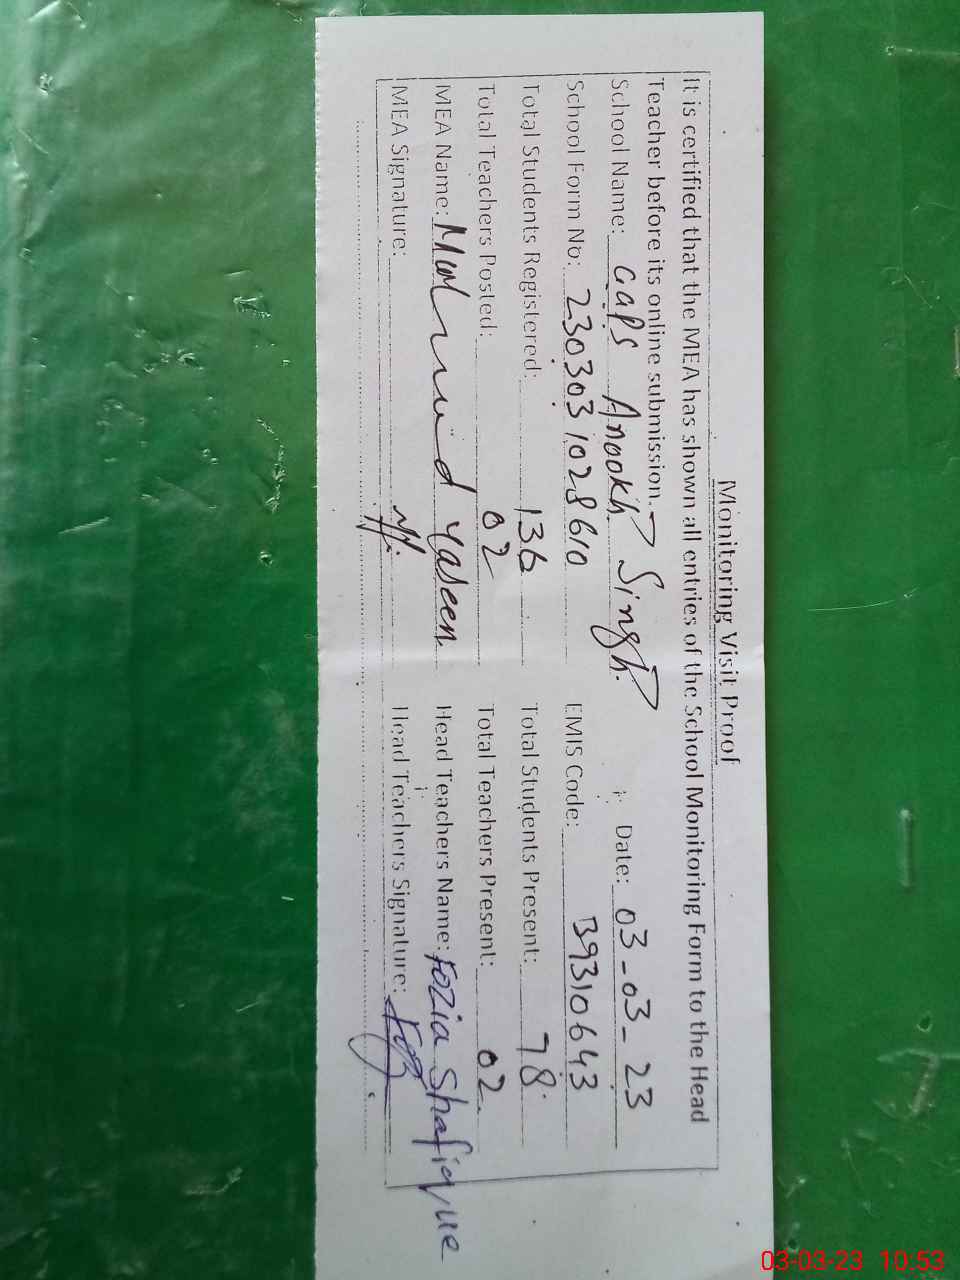 Monitoring Visit Proof
It is certified that the MEA has shown all entries of the School Monitoring Form to the Head
Teacher before its online submission.
School Name: GGPS Anookh Singh Date: 03-03-23
School Form No: 2303031028610 EMIS Code: 39310643
Total Students Registered: 136 Total Students Present: 78
Total Teachers Posted: 02 Total Teachers Present: 02
MEA Name: Yaseen Head Teachers Name: Fozia Shafique
MEA Signature: Head Teachers Signature:
03-03-23 10:53